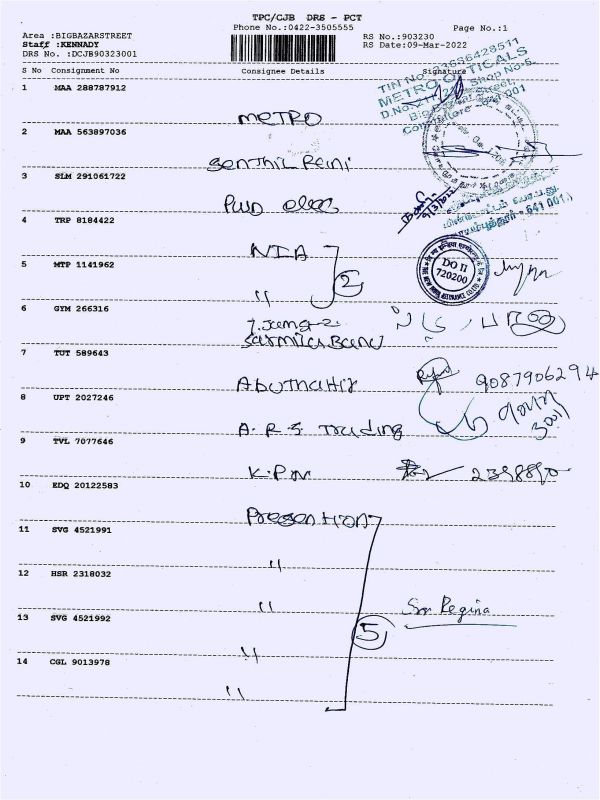 TPC/CJB DRS - PCT
Phone No.:0422-3505555
Page No.:1
Area :BIGBAZARSTREET
Staff :KENNADY
DRS No. :DCJB90323001
RS No.:903230
RS Date:09-Mar-2022
S No Consignment No Consignee Details Signature
1 MAA 288787912
METRO
2 MAA 563897036
3 SLM 291061722
PWD elec
4 TRP 8184422
NIA
5 MTP 1141962
〃 2
6 GYM 266316
Sarmila Banu
7 TUT 589643
Abuthahir 9087906294
8 UPT 2027246
A.R.S. Trading
9 TVL 7077646
K.P.M
10 EDQ 20122583
Presention
11 SVG 4521991
〃
12 HSR 2318032
〃
Regina
13 SVG 4521992
5
〃
14 CGL 9013978
〃
TIN No. 33686428511
METRO OPTICALS
Shop No-5,
Big Bazaar Street,
Coimbatore
641 001.
DO II
720200